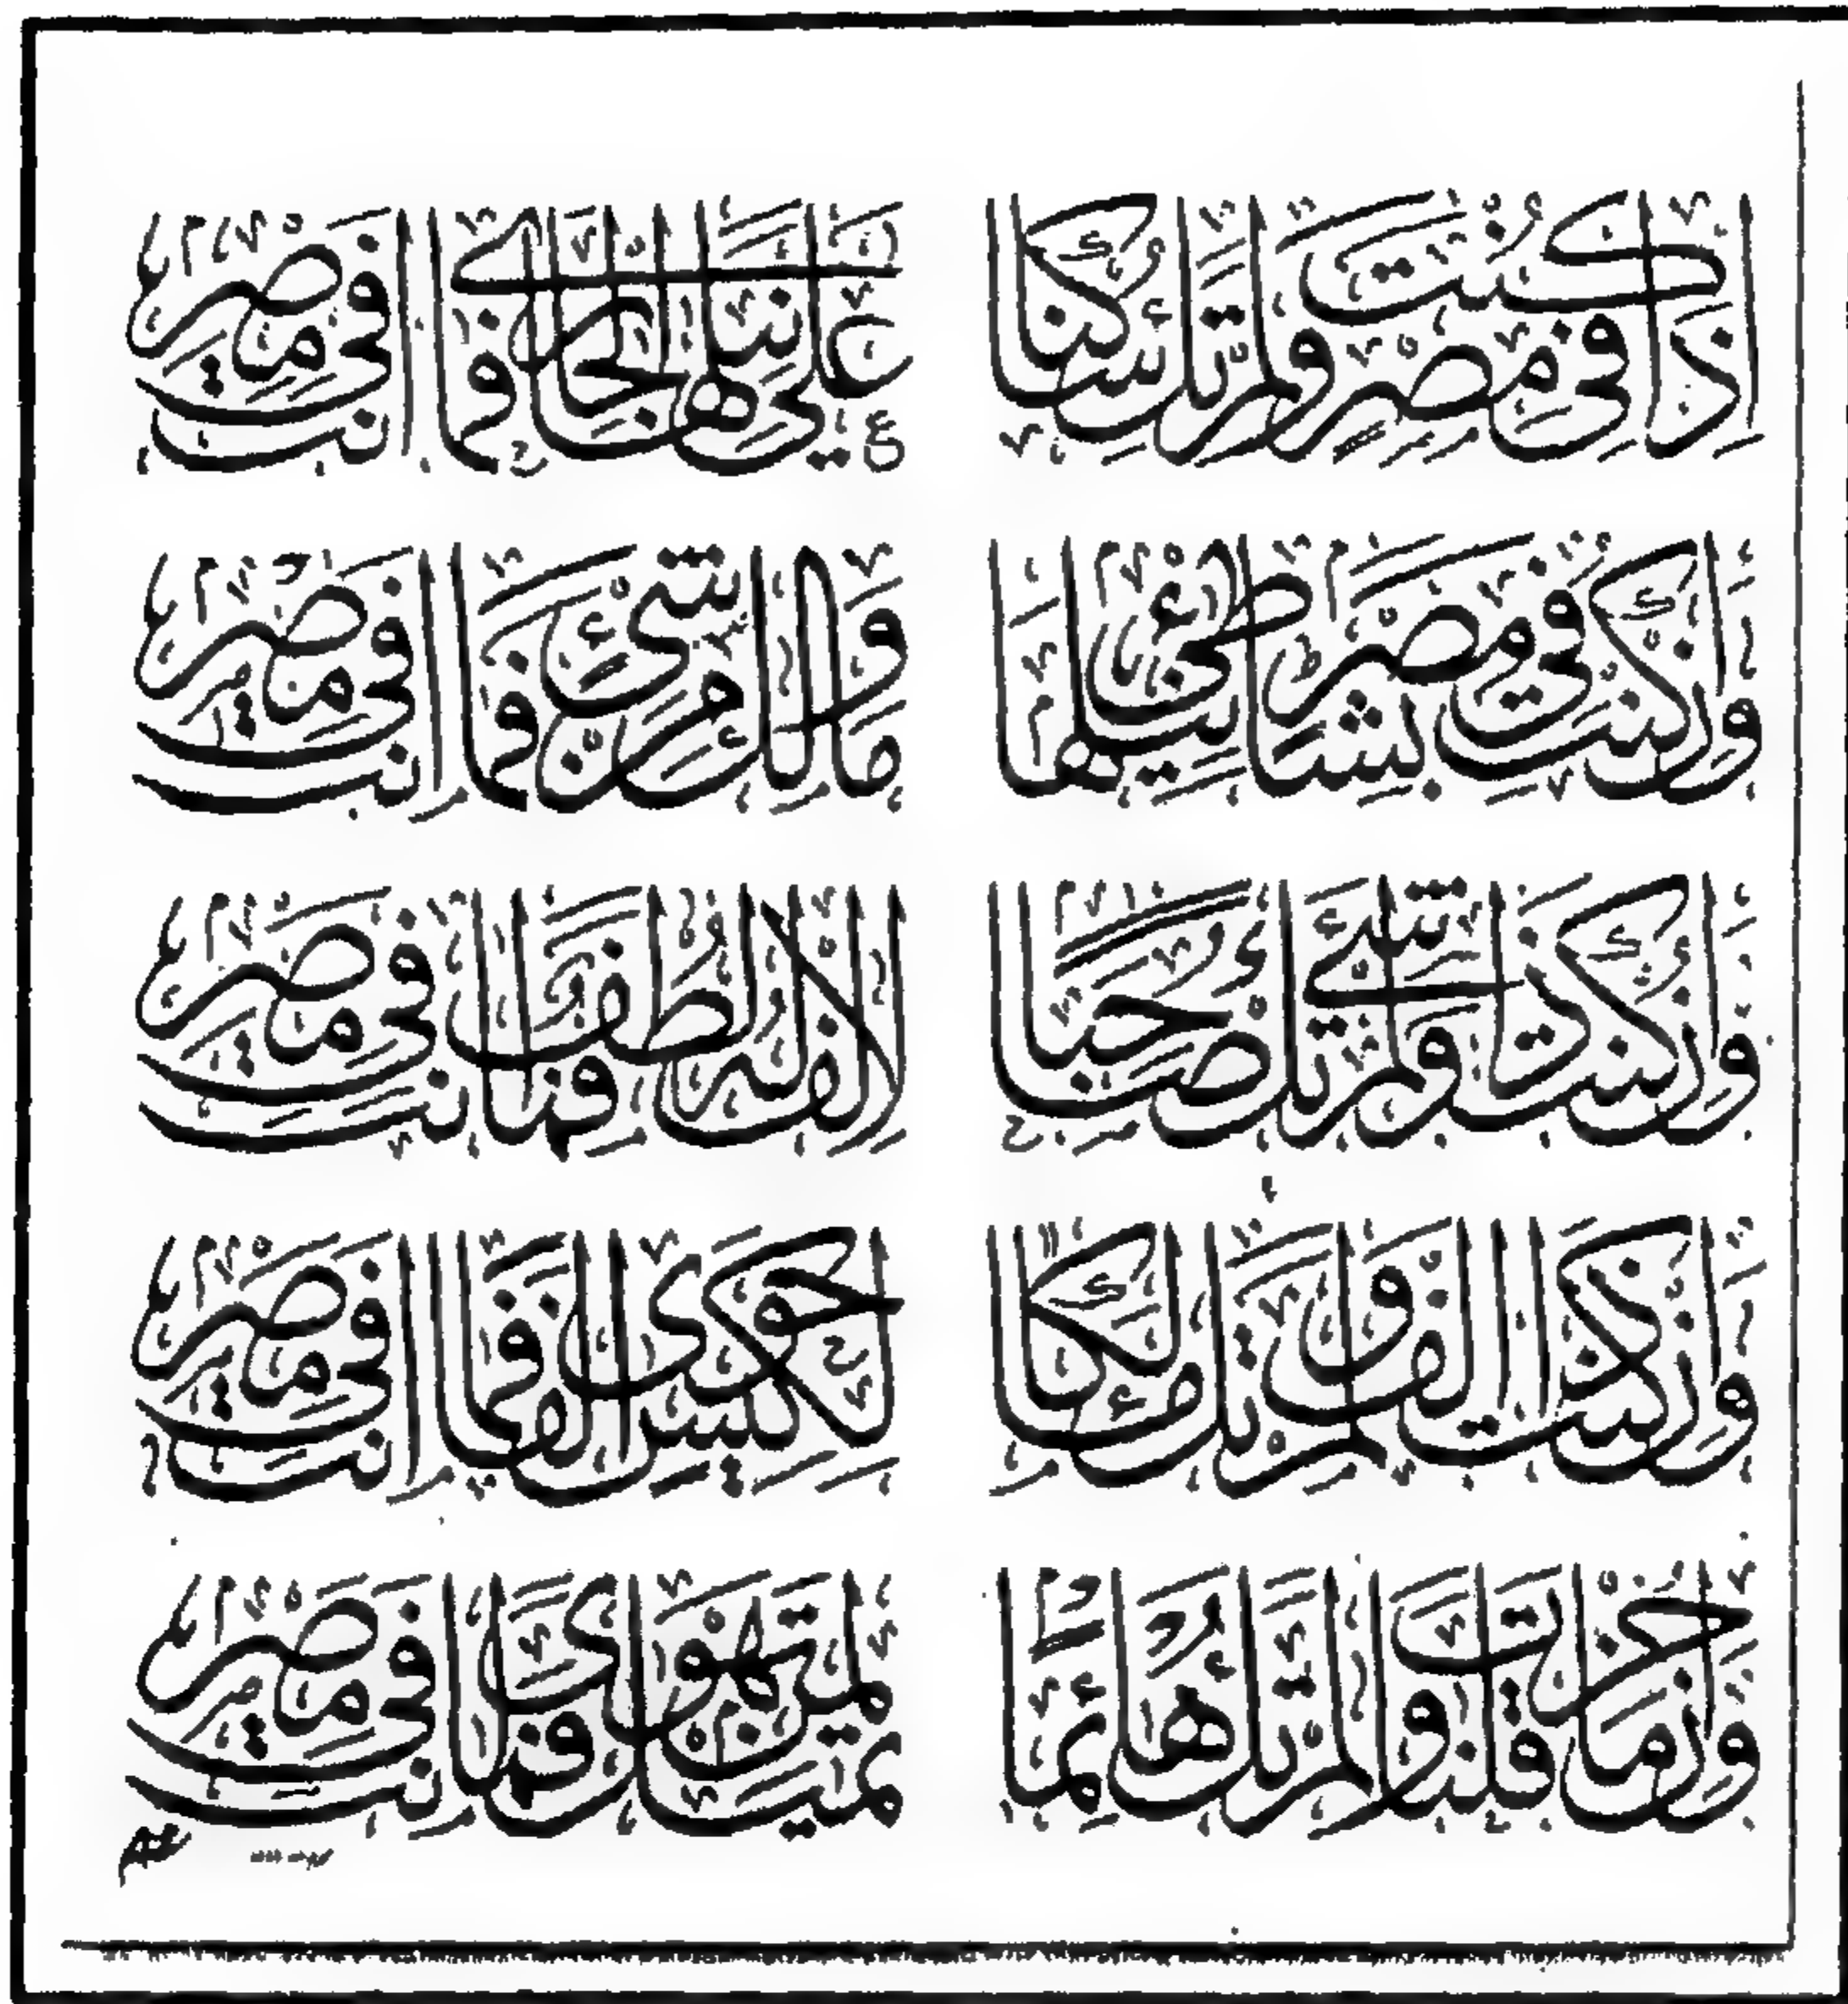 اذا كنت في مصر ولم تك ساكنا
على نيلها الجاري فما انت في مصر
وإن كنت في مصر بشاطئ نيلها
وما لك من شيء فما انت في مصر
وإن كنت ذا شيء ولم تك صاحبا
لإلف له لطف فما انت في مصر
وإن كنت ذا إلف ولم تك مالكا
لكيس حوى ألفا فما انت في مصر
وإن حزت ما قلنا ولم تك هائما
تهوى فما انت في مصر